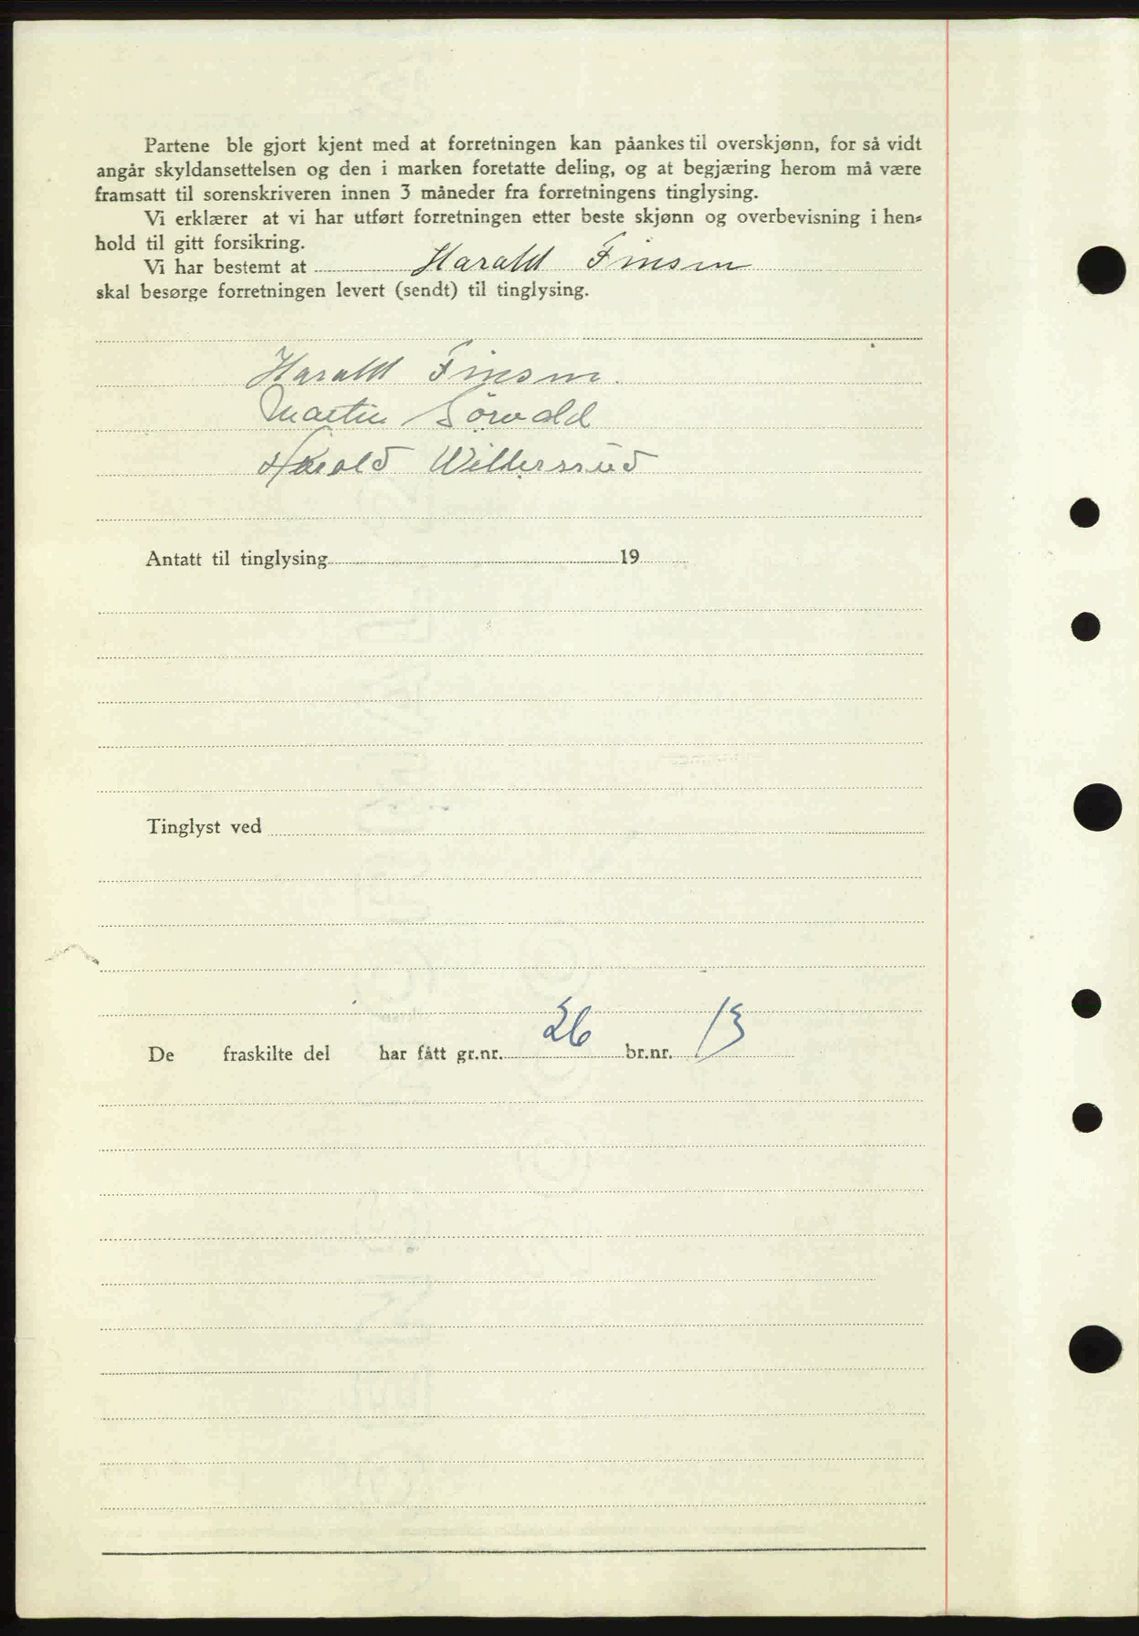 Partene ble gjort kjent med at forretningen kan påankes til overskjønn, for så vidt
angår skyldansettelsen og den i marken foretatte deling, og at begjæring herom må være
framsatt til sorenskriveren innen 3 måneder fra forretningens tinglysing.
Vi erklærer at vi har utført forretningen etter beste skjønn og overbevisning i hen-
hold til gitt forsikring.
Vi har bestemt at Harald Finsrn
skal besørge forretningen levert (sendt) til tinglysing.
Harald Finsrn.
Martin Sörvald
Harald Willersrud
Antatt til tinglysing 19
Tinglyst ved
De fraskilte del har fått gr.nr. 26 br.nr. 13